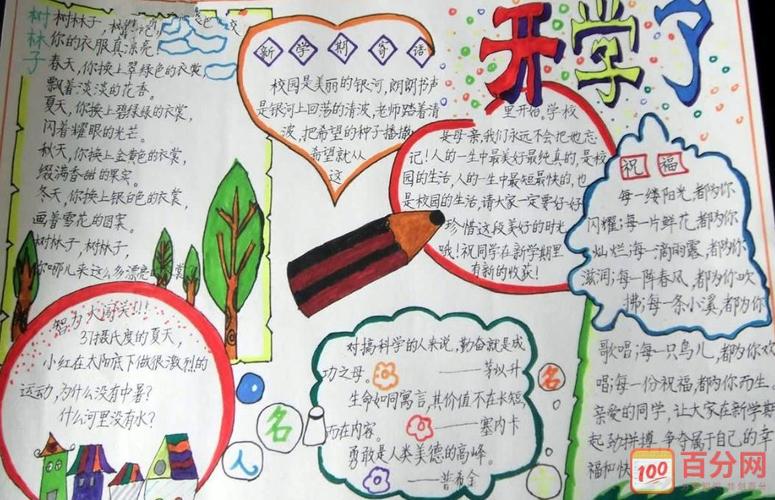 开学了
树林子
树林子,树林子,
你的衣服真漂亮
春天,你换上翠绿色的衣裳,
飘着淡淡的花香。
夏天,你换上碧绿绿的衣裳,
闪着耀眼的光芒。
秋天,你换上金黄色的衣裳,
缀满香甜的果实。
冬天,你换上银白色的衣裳,
画着雪花的图案。
树林子,树林子,
你哪儿来这么多漂亮的衣裳
新学期寄语
校园是美丽的银河,朗朗书声
是银河上回荡的清波,老师踏着清
波,把希望的种子播撒
希望就从
这
里开始,学校
是母亲,我们永远不会把他忘
记!人的一生中最美好最纯真的,是校
园的生活,人的一生中最短最快的,也
是校园的生活,请大家一定要好好
珍惜这段美好的时光
哦!祝同学在新学期里
有新的收获!
祝福
每一缕阳光,都为你
闪耀;每一片鲜花,都为你
灿烂;每一滴雨露,都为你
滋润;每一阵春风,都为你吹
拂;每一条小溪,都为你
歌唱;每一只鸟儿,都为你欢
唱;每一份祝福,都为你而生
亲爱的同学,让大家在新学期
起劲拼搏,争夺属于自己的幸
福和快
智力大闯关!!!
37摄氏度的夏天,
小红在太阳底下做很激烈的
运动,为什么没有中暑?
什么河里没有水?
名人名
对搞科学的人来说,勤奋就是成
功之母。
——茅以升
生命如同寓言,其价值不在长短,
而在内容。
——塞内卡
勇敢是人类美德的高峰。
——普希金
100
百分网